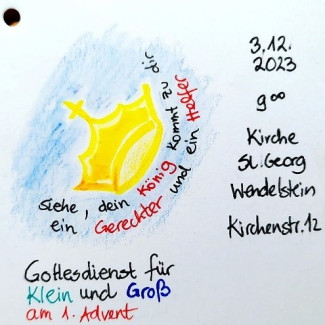 siehe, dein König kommt zu dir
ein Gerechter und ein Helfer
3.12.
2023
9⁰⁰
Kirche
St. Georg
Wendelstein
Kirchenstr. 12
Gottesdienst für
Klein und Groß
am 1. Advent